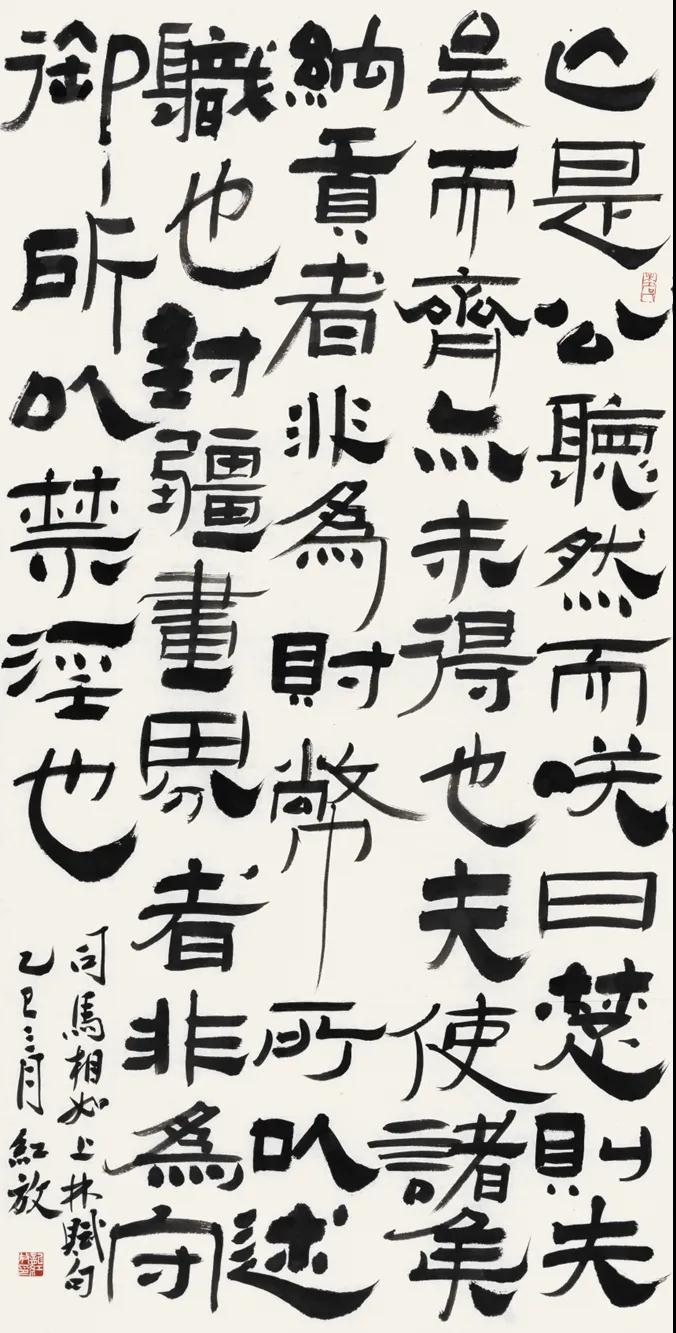 亡是公聽然而咲曰楚則失
矣而齊亦未得也夫使諸侯
納貢者非為財幣所以述
職也封疆畫界者非為守
御所以禁淫也
司馬相如上林賦句
乙巳三月 紅放